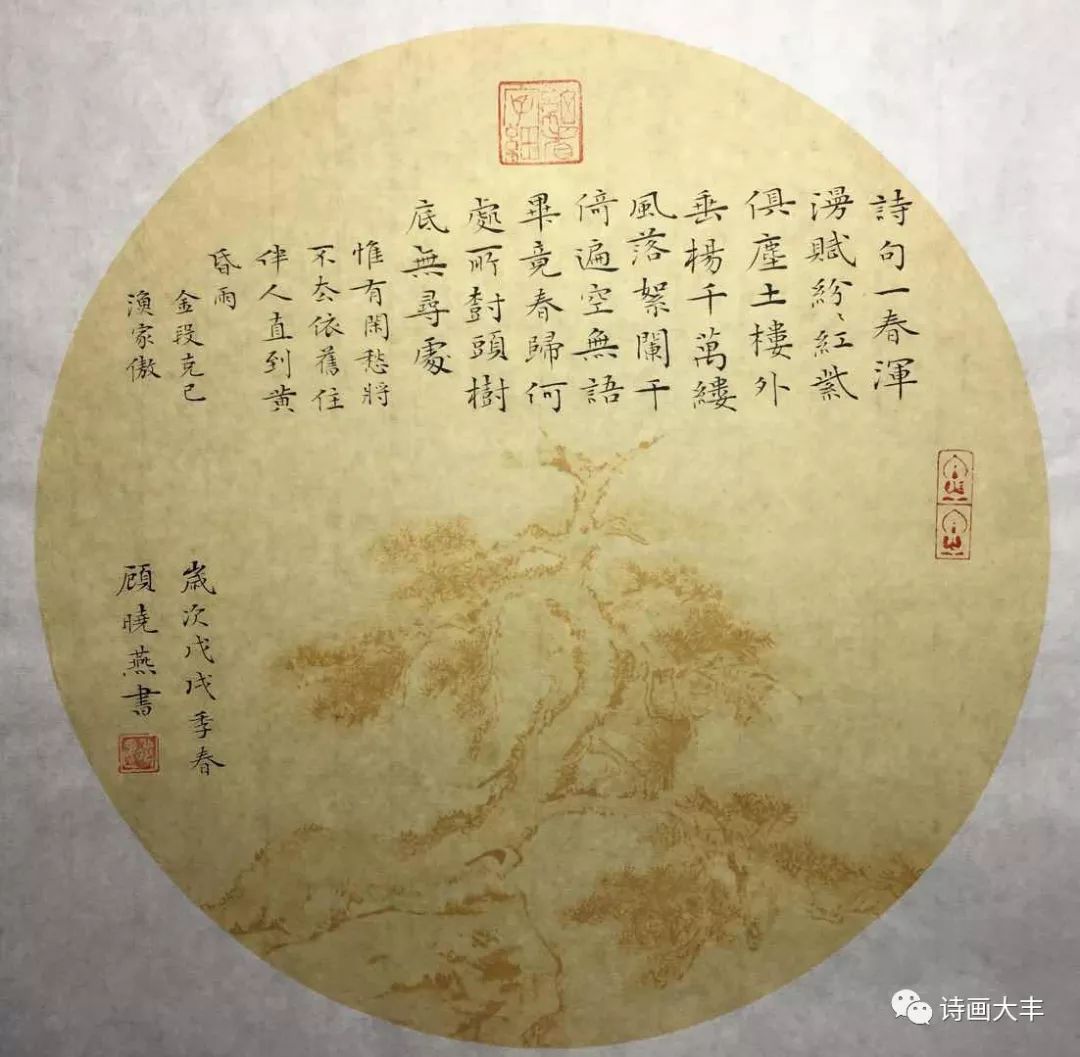 詩句一春渾
漫賦紛〻紅紫
俱塵土樓外
垂楊千萬縷
風落絮闌干
倚遍空無語
畢竟春歸何
處所對頭樹
底無尋處
惟有閑愁將
不去依舊住
伴人直到黄
昏雨
金段克己
漁家傲
歲次戊戌季春
顧曉燕書
诗画大丰